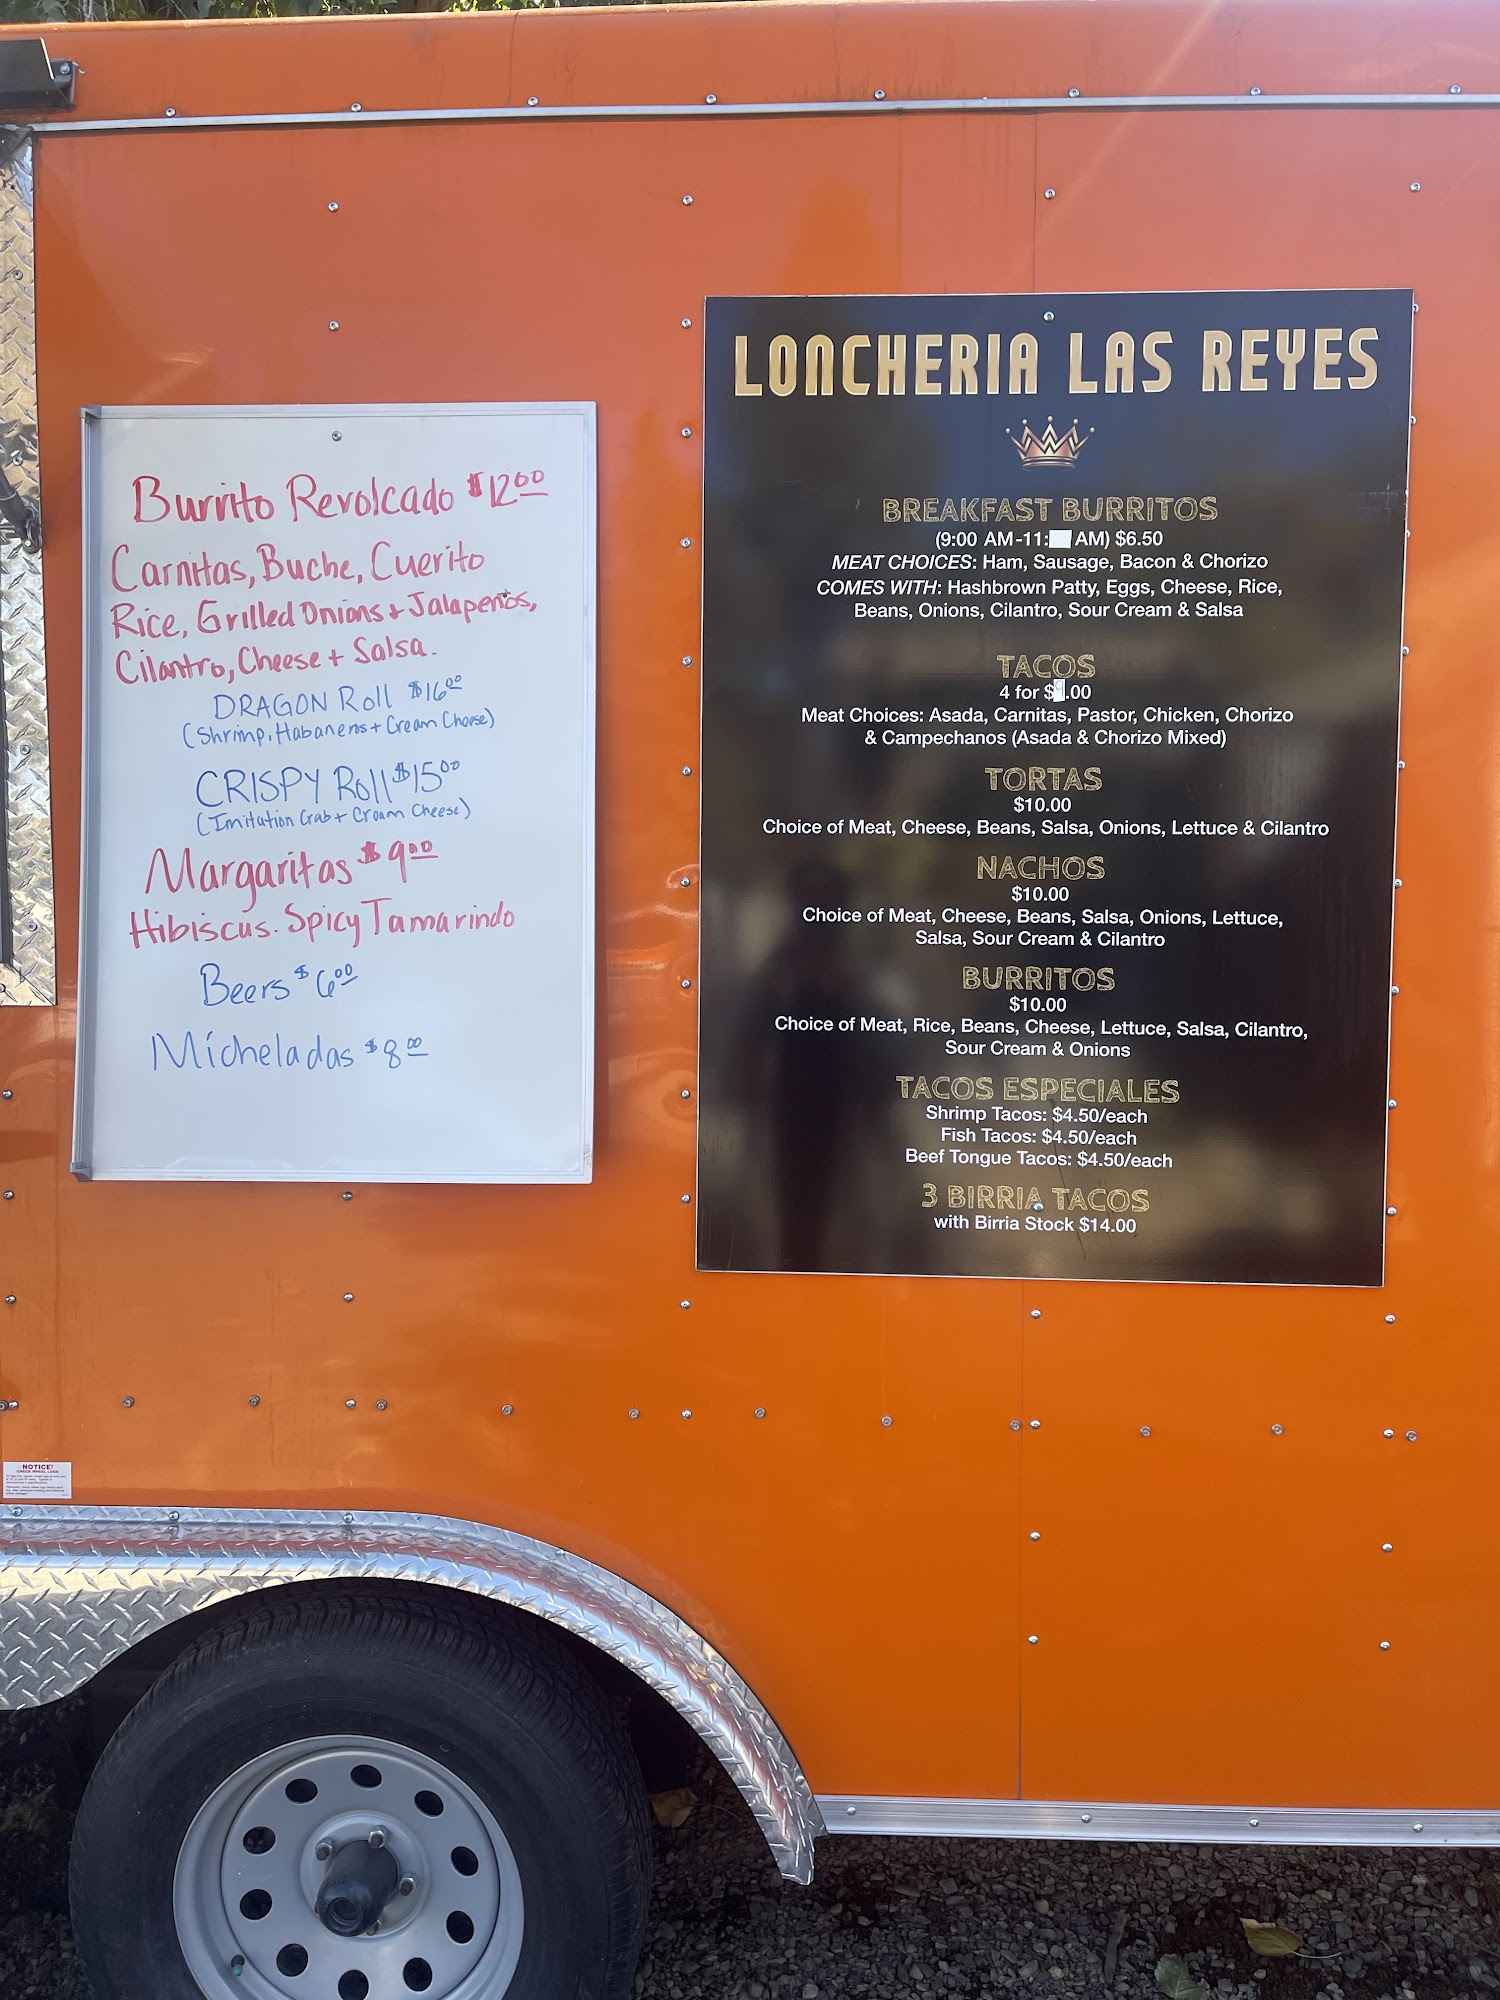 Burrito Revolcado $12.00
Carnitas, Buche, Cuerito
Rice, Grilled Onions + Jalapeños,
Cilantro, Cheese + Salsa.
DRAGON Roll $16.00
(Shrimp, Habaneros + Cream Cheese)
CRISPY Roll $15.00
(Imitation Crab + Cream Cheese)
Margaritas $9.00
Hibiscus. Spicy Tamarindo
Beers $6.00
Micheladas $8.00
LONCHERIA LAS REYES
BREAKFAST BURRITOS
(9:00 AM-11: AM) $6.50
MEAT CHOICES: Ham, Sausage, Bacon & Chorizo
COMES WITH: Hashbrown Patty, Eggs, Cheese, Rice,
Beans, Onions, Cilantro, Sour Cream & Salsa
TACOS
4 for $9.00
Meat Choices: Asada, Carnitas, Pastor, Chicken, Chorizo
& Campechanos (Asada & Chorizo Mixed)
TORTAS
$10.00
Choice of Meat, Cheese, Beans, Salsa, Onions, Lettuce & Cilantro
NACHOS
$10.00
Choice of Meat, Cheese, Beans, Salsa, Onions, Lettuce,
Salsa, Sour Cream & Cilantro
BURRITOS
$10.00
Choice of Meat, Rice, Beans, Cheese, Lettuce, Salsa, Cilantro,
Sour Cream & Onions
TACOS ESPECIALES
Shrimp Tacos: $4.50/each
Fish Tacos: $4.50/each
Beef Tongue Tacos: $4.50/each
3 BIRRIA TACOS
with Birria Stock $14.00
NOTICE!
CHECK WHEEL LUGS